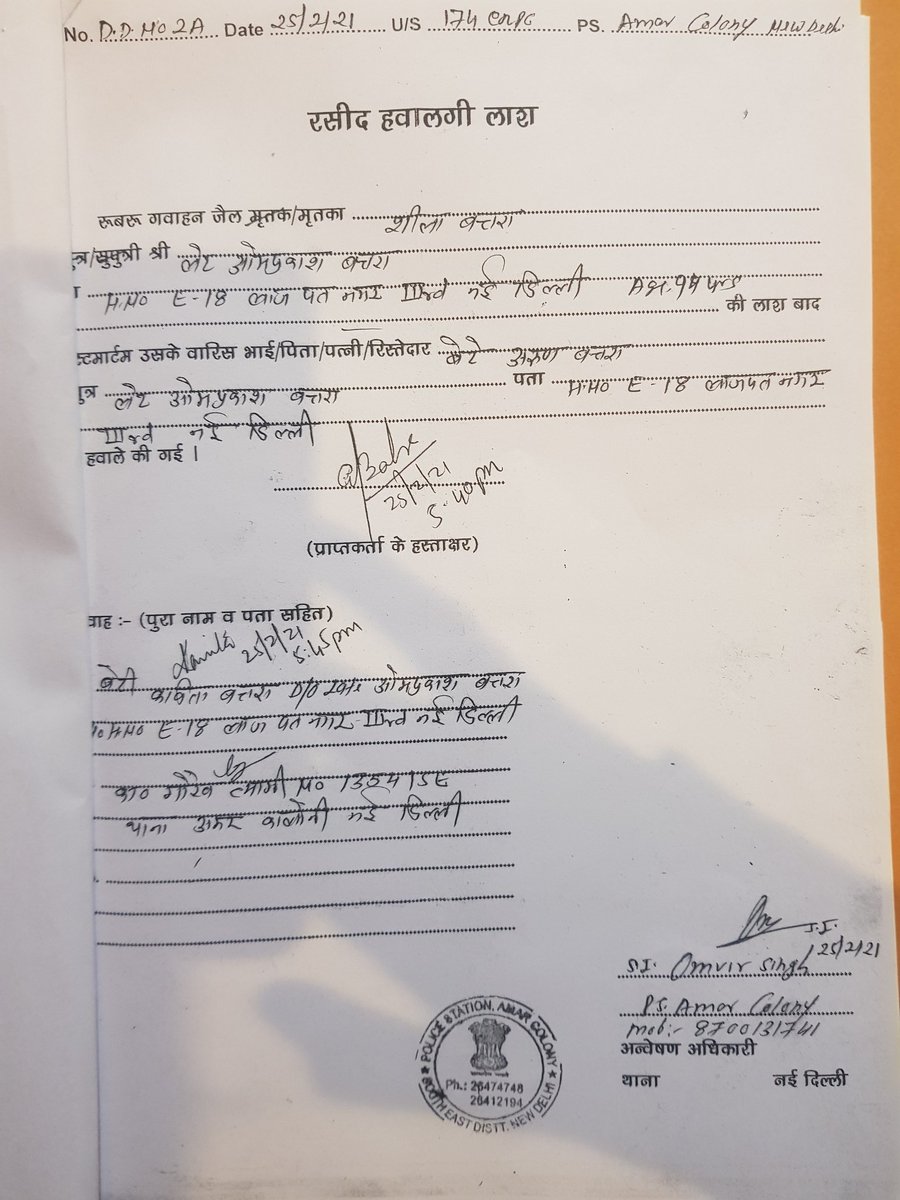 No. D.D. No 2A Date 25/2/21 U/S 174 CRPC PS. Amar Colony New Delhi
रसीद हवालगी लाश
रूबरू गवाहन जैल मृतक/मृतका शीला बत्तरा
त्र/सुपुत्री श्री लेट ओमप्रकाश बत्तरा
H.No E-18 लाजपत नगर IIIrd नई दिल्ली Age. 94
की लाश बाद
स्टमार्टम उसके वारिस भाई/पिता/पत्नी/रिस्तेदार बेटे अरुण बत्तरा
पुत्र लेट ओमप्रकाश बत्तरा पता H.No E-18 लाजपत नगर
IIIrd नई दिल्ली
हवाले की गई ।
25/2/21
5:40 pm
(प्राप्तकर्ता के हस्ताक्षर)
वाह :- (पुरा नाम व पता सहित)
25/2/21
5:45 pm
बेटी कविता बत्तरा D/O Late ओमप्रकाश बत्तरा
H.No E-18 लाजपत नगर-IIIrd नई दिल्ली
का० गौरव त्यागी No 1354/SE
थाना अमर कालोनी नई दिल्ली
S.I.
25/2/21
S.I. Omvir Singh
PS. Amar Colony
mob:- 8700131741
अन्वेषण अधिकारी
थाना नई दिल्ली
POLICE STATION, AMAR COLONY
Ph.: 26474748
26412194
SOUTH EAST DISTT. NEW DELHI